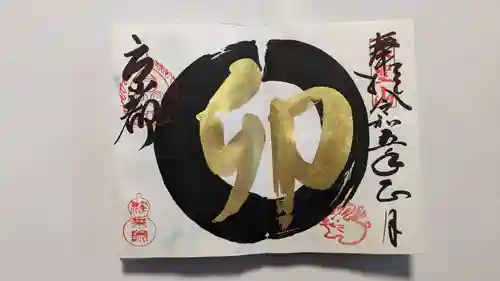 奉拝 令和五年正月
卯
京都